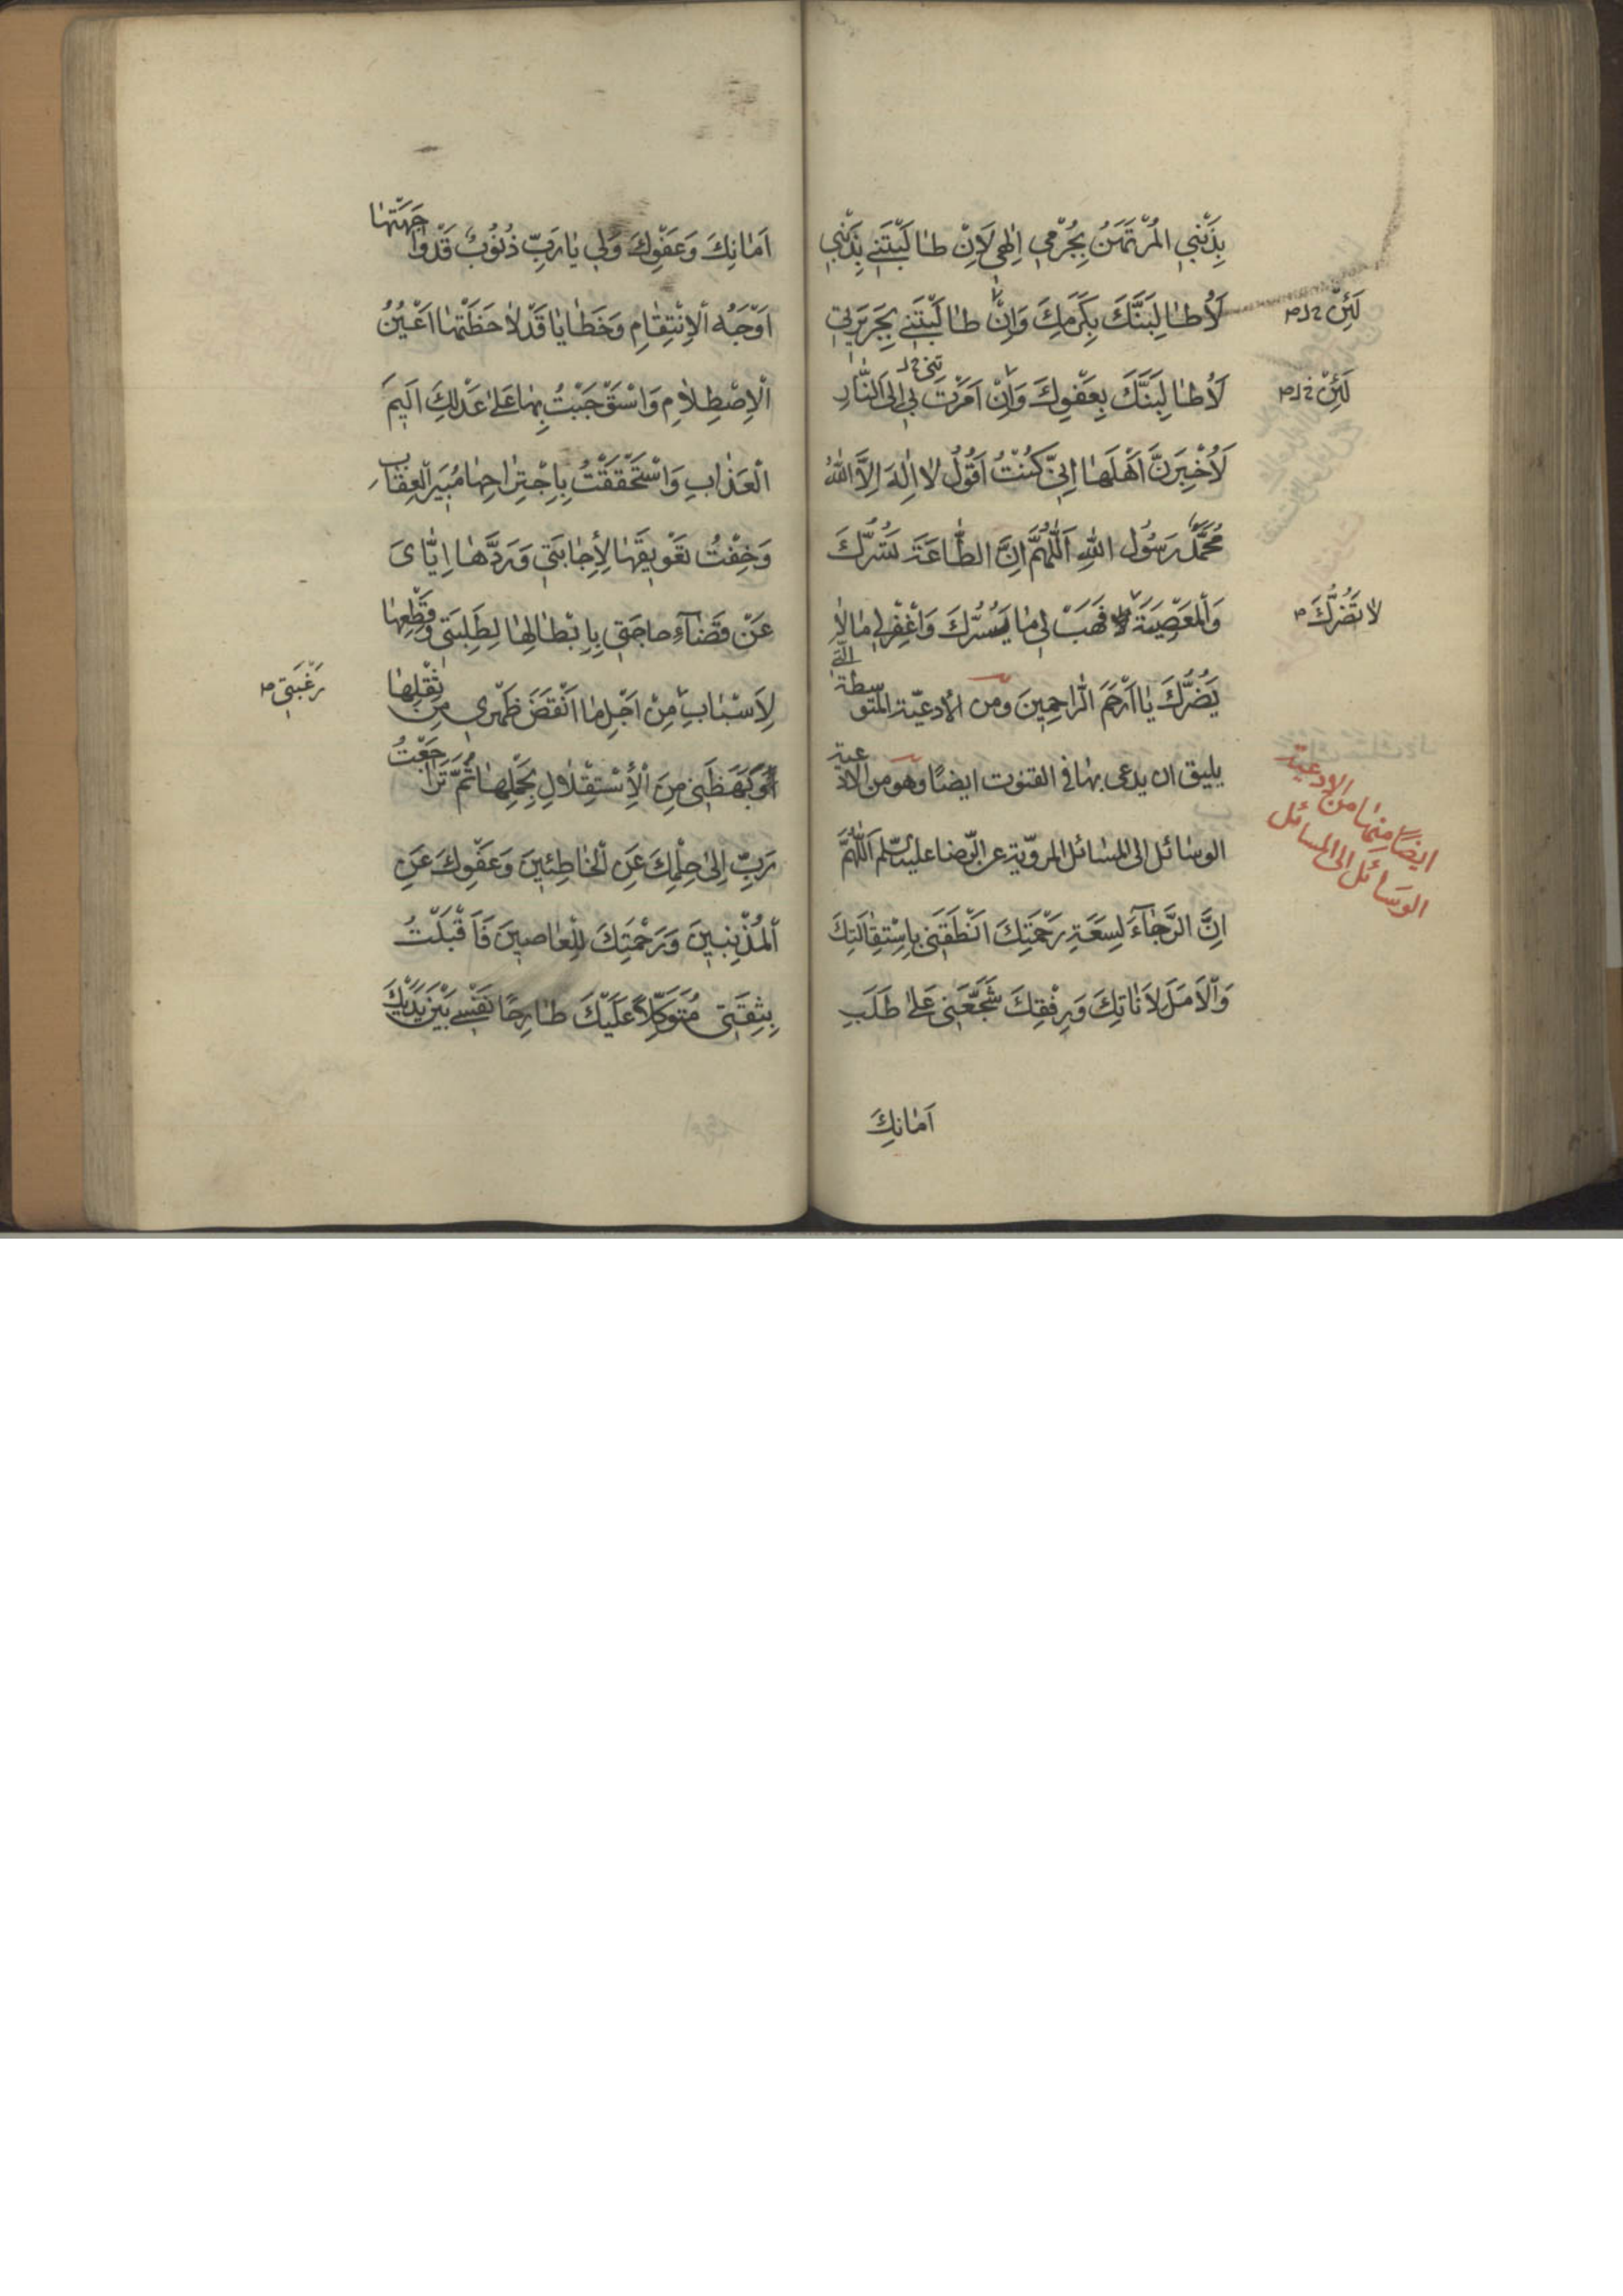 بِذَنْبِي الْمُرْتَهَنُ بِجُرْمِي اِلٰهِي لَاِنْ طٰالَبْتَنِي بِذَنْبِي
لَاُطٰالِبَنَّكَ بِكَرَمِكَ وَاِنْ طٰالَبْتَنِي بِجَرِيرَتِي
لَئِنْ خ ل ص
لَاُطٰالِبَنَّكَ بِعَفْوِكَ وَاِنْ اَمَرْتَ بِي اِلَى النّٰارِ
لَئِنْ خ ل ص
لَاُخْبِرَنَّ اَهْلَهٰا اِنِّي كُنْتُ اَقُولُ لٰا اِلٰهَ اِلَّا اللّٰهُ
مُحَمَّدٌ رَسُولُ اللّٰهِ اَللّٰهُمَّ اِنَّ الطّٰاعَةَ تَسُرُّكَ
وَالْمَعْصِيَةَ لا فَهَبْ لِي مٰا يَسُرُّكَ وَاغْفِرْ لِي مٰا لٰا
لٰا تَضُرُّكَ ص
يَضُرُّكَ يٰا اَرْحَمَ الرّٰاحِمِينَ ومن الادعيّة المتوسطة الّتي
يليق ان يدعى بهٰا في القنوت ايضًا وهو من الادعية
الوسٰائل الى المسٰائل المرويّة عن الرّضا عليه السّلم اَللّٰهُمَّ
ايضًا منهٰا من الادعية
الوسَائل الى المسائل
اِنَّ الرَّجٰآءَ لِسَعَةِ رَحْمَتِكَ اَنْطَقَنِي بِاِسْتِقٰالَتِكَ
وَالْاَمَلَ لِاَنٰاتِكَ وَرِفْقِكَ شَجَّعَنِي عَلىٰ طَلَبِ
اَمٰانِكَ
اَمٰانِكَ وَعَفْوِكَ وَلِي يٰا رَبِّ ذُنُوبٌ قَدْ وٰاجَهَتْهٰا
اَوْجُهُ الْاِنْتِقٰامِ وَخَطٰايٰا قَدْ لٰاحَظَتْهٰا اَعْيُنُ
الْاِصْطِلٰامِ وَاسْتَوْجَبْتُ بِهٰا عَلىٰ عَدْلِكَ اَلِيمَ
الْعَذٰابِ وَاسْتَحْقَقْتُ بِاِجْتِرٰاحِهٰا مُبِيرَ الْعِقٰابِ
وَخِفْتُ تَعْوِيقَهٰا لِاِجٰابَتِي وَرَدَّهٰا اِيّٰايَ
عَنْ قَضٰآءِ حٰاجَتِي بِاِبْطٰالِهٰا لِطَلِبَتِي وَقَطْعِهٰا
لِاَسْبٰابِ مِنْ اَجْلِ مٰا اَنْقَضَ ظَهْرِي مِنْ ثِقْلِهٰا
رَغْبَتِي ص
وَبَهَظَنِي مِنَ الْاِسْتِقْلٰالِ بِحَمْلِهٰا ثُمَّ تَرٰاجَعْتُ
رَبِّ اِلىٰ حِلْمِكَ عَنِ الْخٰاطِئِينَ وَعَفْوِكَ عَنِ
الْمُذْنِبِينَ وَرَحْمَتِكَ لِلْعٰاصِينَ فَاَقْبَلْتُ
بِثِقَتِي مُتَوَكِّلًا عَلَيْكَ طٰارِحًا نَفْسِي بَيْنَ يَدَيْكَ